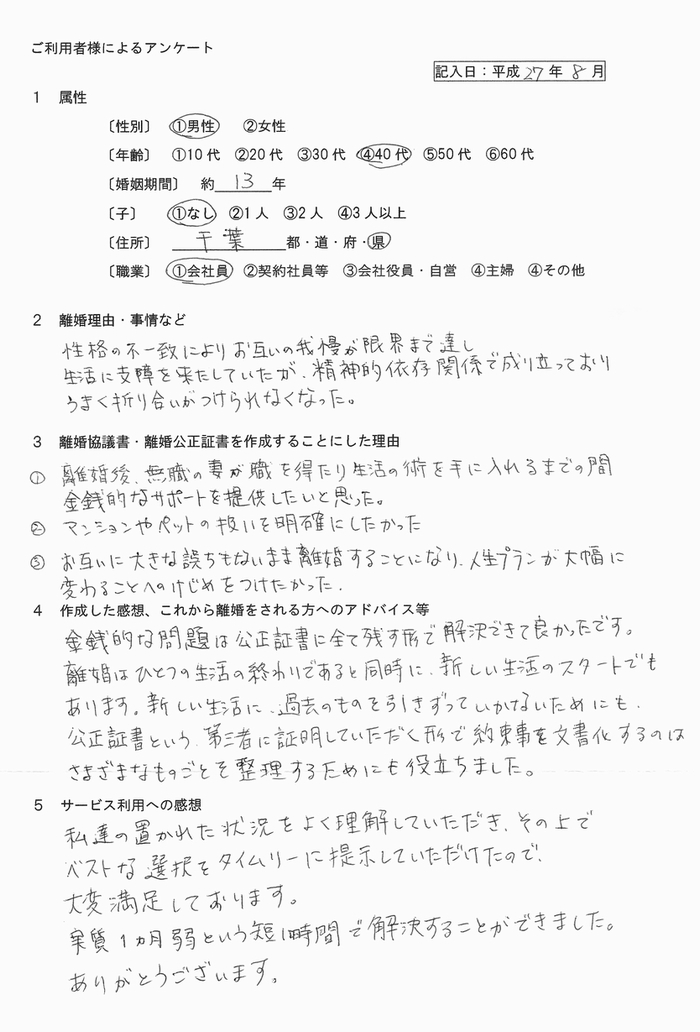 ご利用者様によるアンケート
記入日：平成 27 年 8 月
1 属性
〔性別〕 ①男性 ②女性
〔年齢〕 ①10代 ②20代 ③30代 ④40代 ⑤50代 ⑥60代
〔婚姻期間〕 約 13 年
〔子〕 ①なし ②1人 ③2人 ④3人以上
〔住所〕 千葉 都・道・府・県
〔職業〕 ①会社員 ②契約社員等 ③会社役員・自営 ④主婦 ④その他
2 離婚理由・事情など
性格の不一致によりお互いの我慢が限界まで達し
生活に支障を来たしていたが、精神的依存関係で成り立っており
うまく折り合いがつけられなくなった。
3 離婚協議書・離婚公正証書を作成することにした理由
① 離婚後、無職の妻が職を得たり生活の術を手に入れるまでの間
金銭的なサポートを提供したいと思った。
② マンションやペットの扱いを明確にしたかった
③ お互いに大きな誤ちもないまま離婚することになり、人生プランが大幅に
変わることへのけじめをつけたかった．
4 作成した感想、これから離婚をされる方へのアドバイス等
金銭的な問題は公正証書に全て残す形で解決できて良かったです。
離婚はひとつの生活の終わりであると同時に、新しい生活のスタートでも
あります。新しい生活に、過去のものを引きずっていかないためにも、
公正証書という、第三者に証明していただく形で約束事を文書化するのは
さまざまなものごとを整理するためにも役立ちました。
5 サービス利用への感想
私達の置かれた状況をよく理解していただき、その上で
ベストな選択をタイムリーに提示していただけたので、
大変満足しております。
実質1ヵ月弱という短い時間で解決することができました。
ありがとうございます。